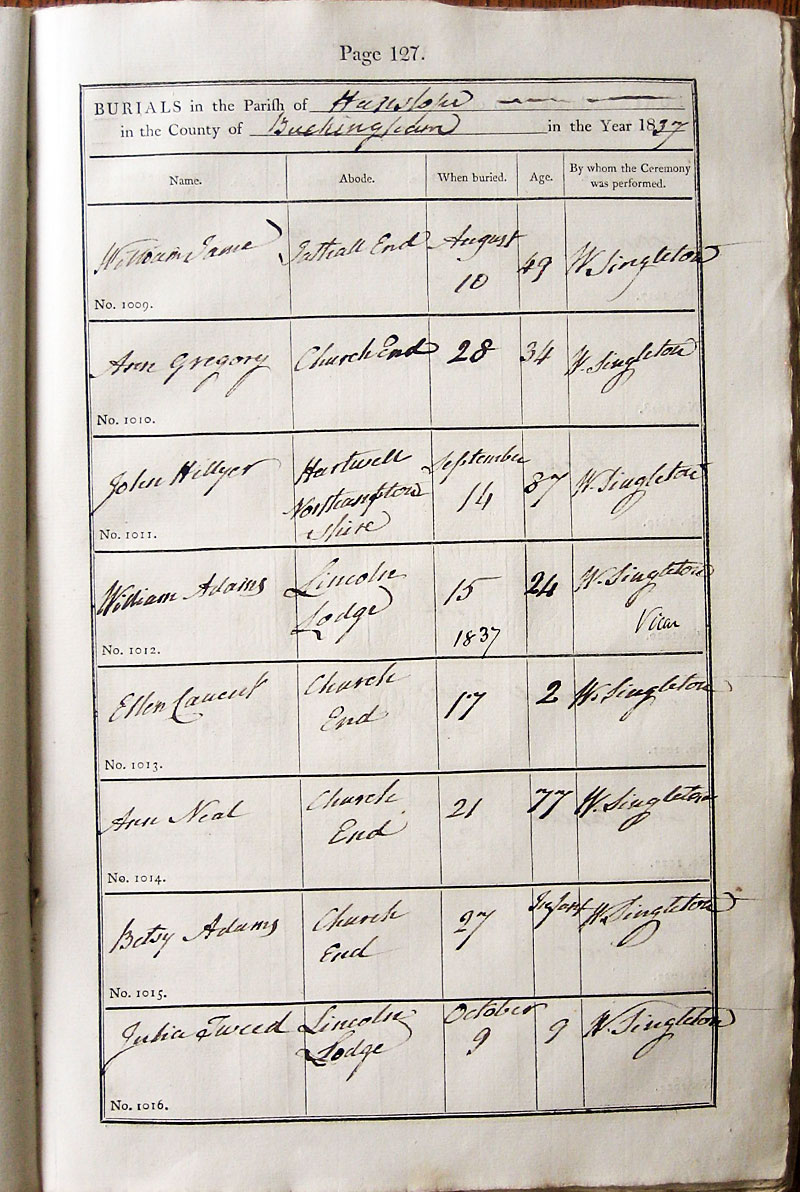 Page 127.
BURIALS in the Parish of Hanslope
in the County of Buckingham in the Year 1837
Name. Abode. When buried. Age. By whom the Ceremony was performed.
William Tathall End August 10 49 W. Singleton
No. 1009.
Ann Gregory Church End 28 34 W. Singleton
No. 1010.
John Hillyer Hartwell Northampton shire September 14 87 W. Singleton
No. 1011.
William Adams Lincoln Lodge 15 1837 24 W. Singleton Vicar
No. 1012.
Ellen Church End 17 2 W. Singleton
No. 1013.
Ann Neal Church End 21 77 W. Singleton
No. 1014.
Betsy Adams Church End 27 Infant W. Singleton
No. 1015.
Julia Tweed Lincoln Lodge October 9 9 W. Singleton
No. 1016.